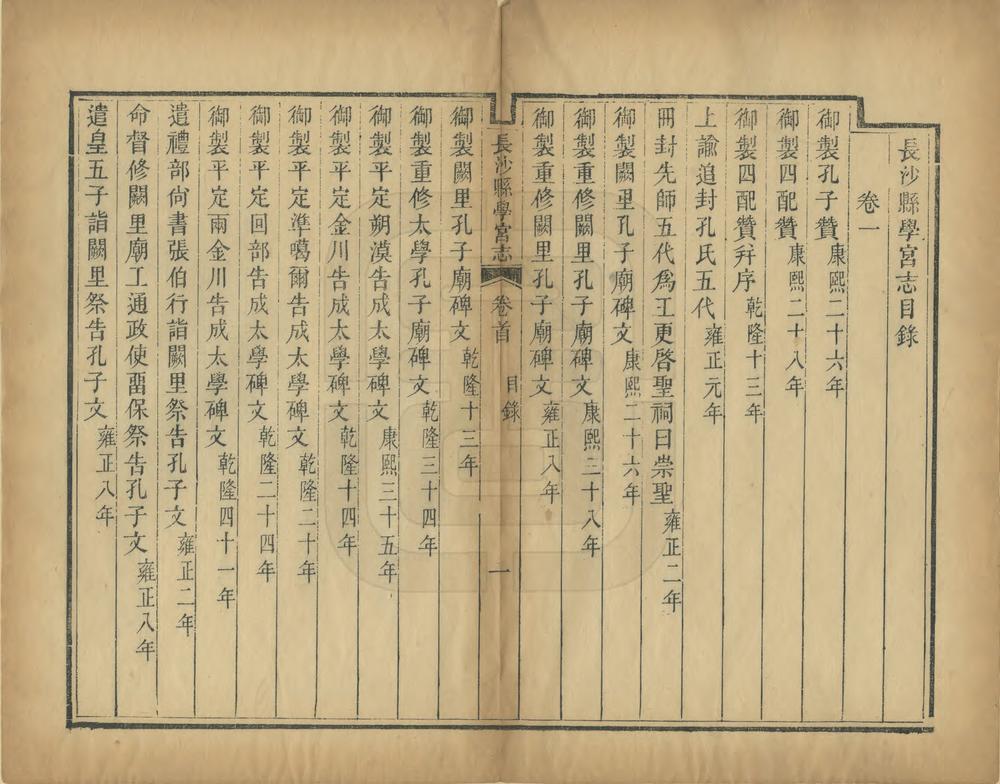 長沙縣學宮志目錄
卷一
御製孔子贊 康熙二十六年
御製四配贊 康熙二十八年
御製四配贊并序 乾隆十三年
上諭追封孔氏五代 雍正元年
冊封先師五代爲王更啓聖祠曰崇聖 雍正二年
御製闕里孔子廟碑文 康熙二十六年
御製重修闕里孔子廟碑文 康熙三十八年
御製重修闕里孔子廟碑文 雍正八年
長沙縣學宮志 卷首 目錄 一
御製闕里孔子廟碑文 乾隆十三年
御製重修太學孔子廟碑文 乾隆三十四年
御製平定朔漠告成太學碑文 康熙三十五年
御製平定金川告成太學碑文 乾隆十四年
御製平定準噶爾告成太學碑文 乾隆二十年
御製平定回部告成太學碑文 乾隆二十四年
御製平定兩金川告成太學碑文 乾隆四十一年
遣禮部尙書張伯行詣闕里祭告孔子文 雍正二年
命督修闕里廟工通政使畱保祭告孔子文 雍正八年
遣皇五子詣闕里祭告孔子文 雍正八年